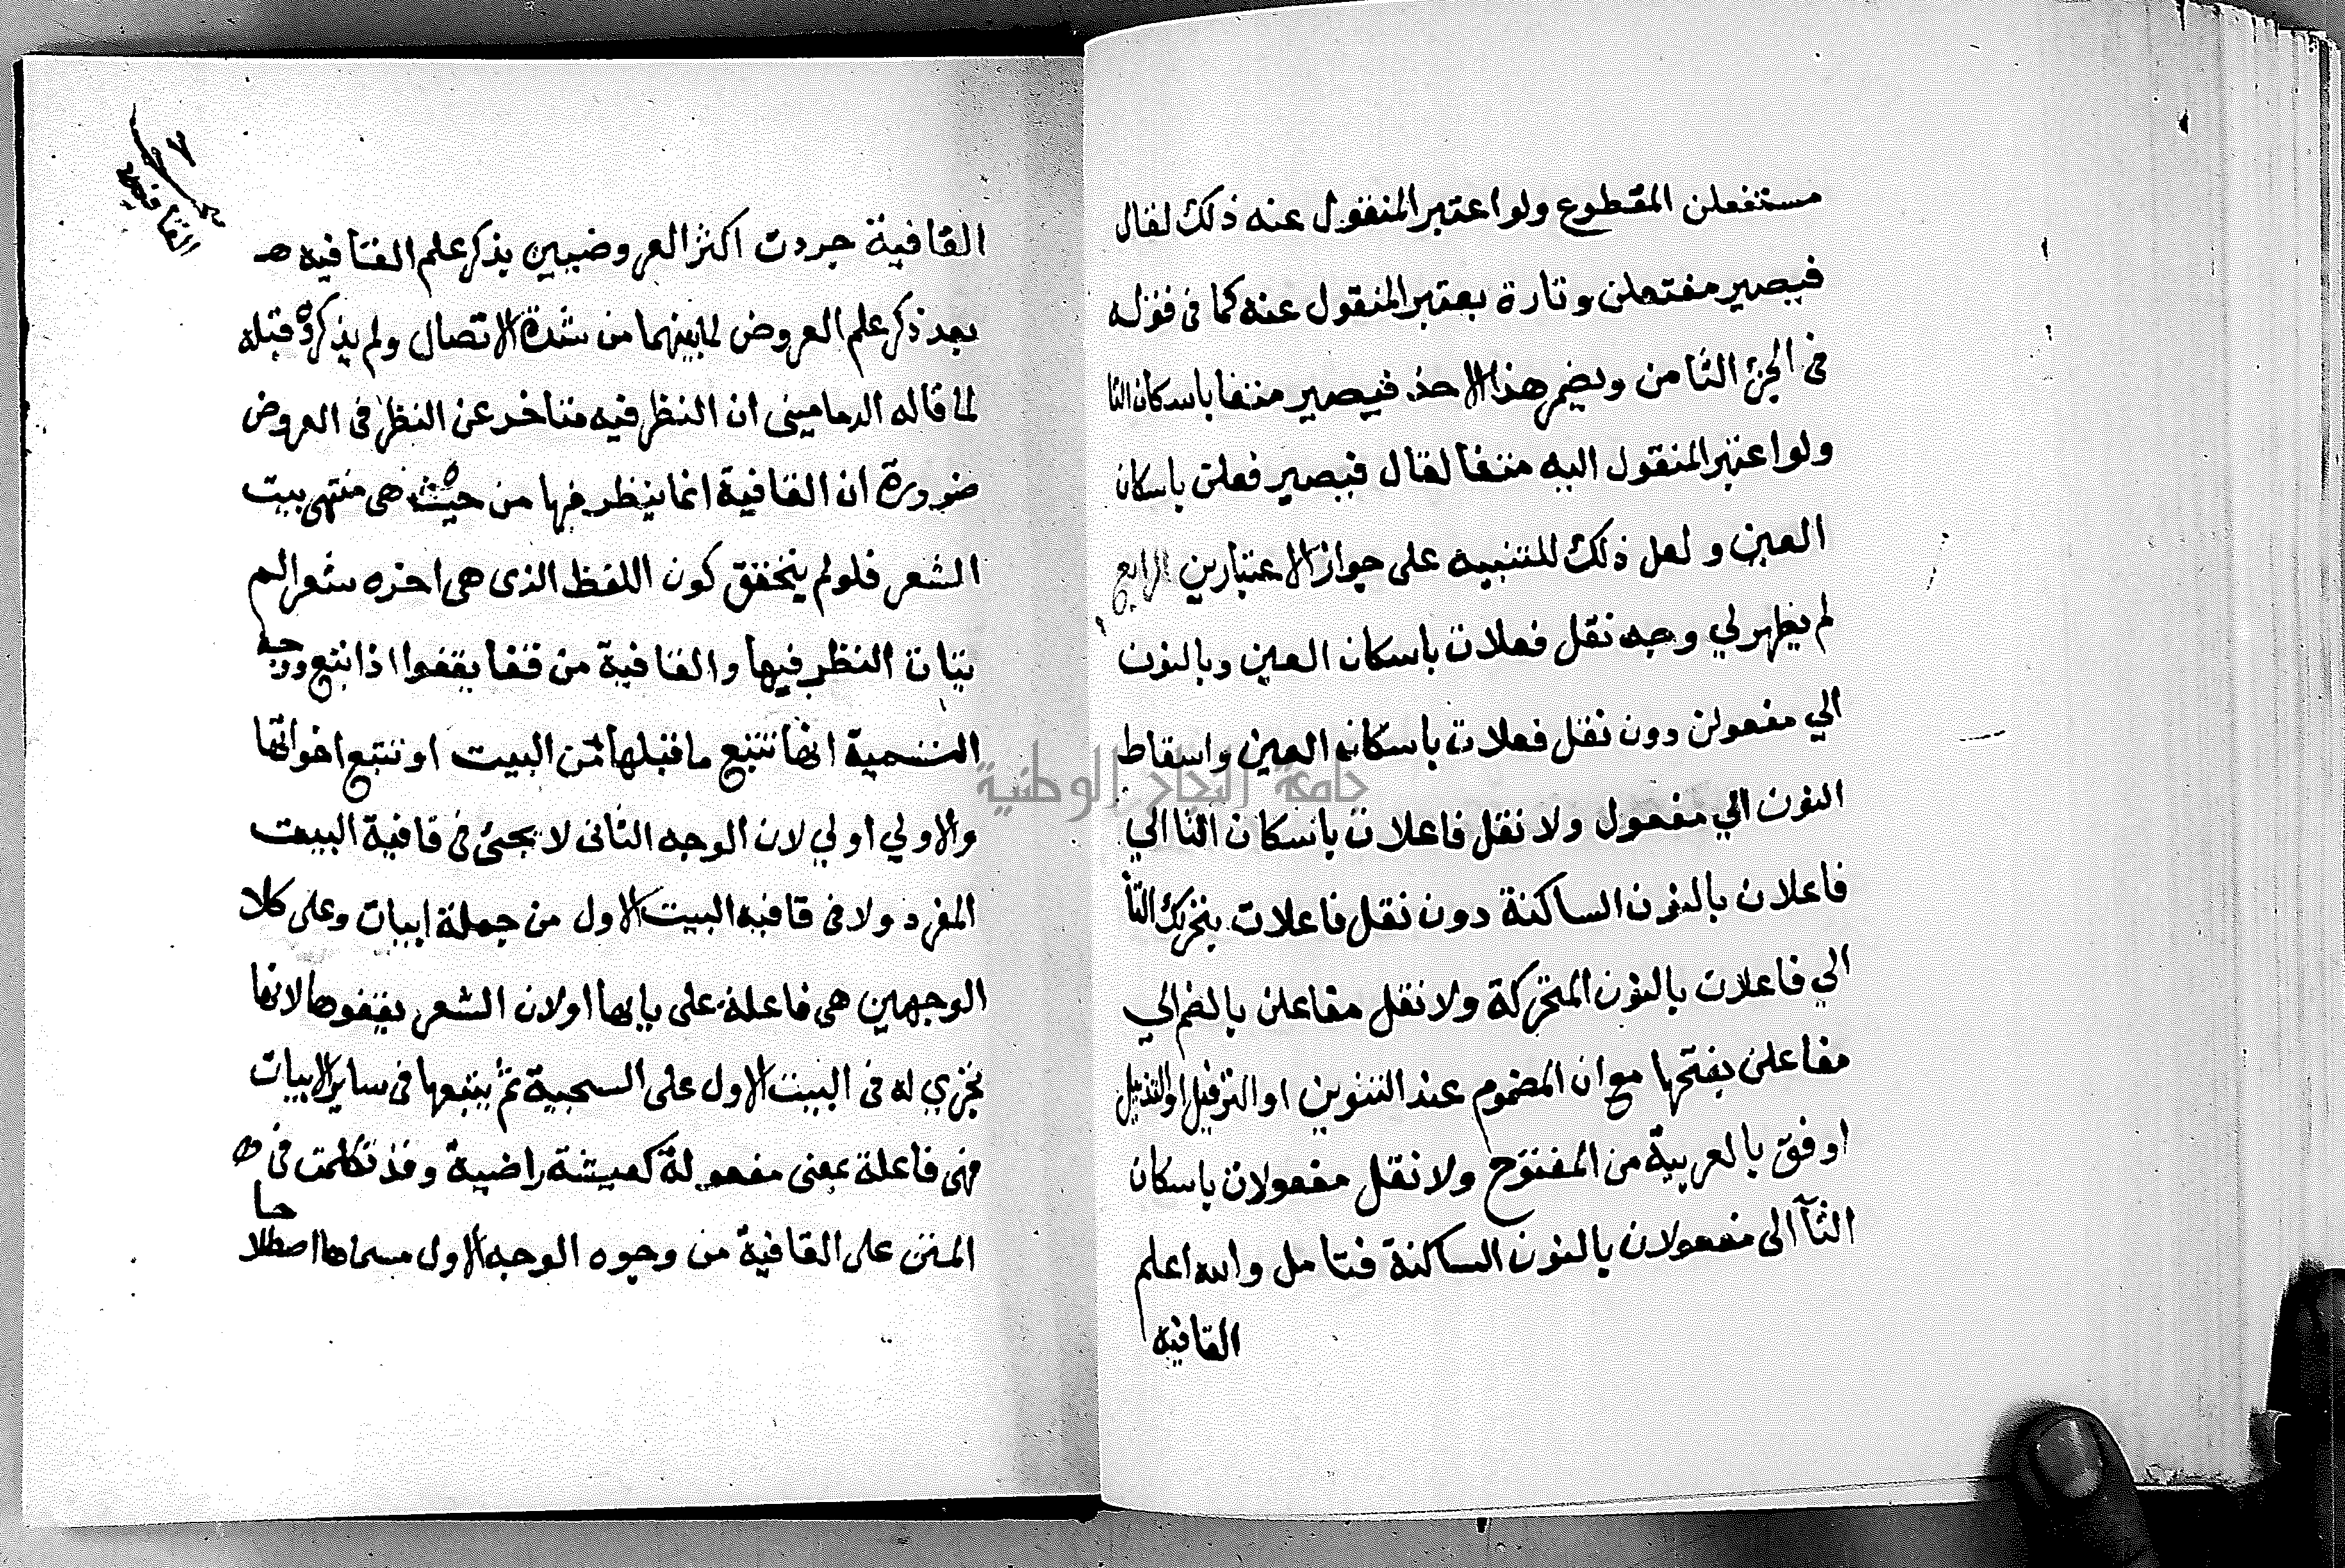 مستفعلن المقطوع ولو اعتبر المنقول عنه ذلك لقال
فيصير مفتعلن وتارة يعتبر المنقول عنه كما في قوله
في الجزء الثامن ويضمر هذا الاحذ فيصير متفا باسكان التا
ولو اعتبر المنقول اليه متفا لقال فيصير فعلن باسكان
العين ولعل ذلك للتنبيه على جواز الاعتبارين الرابع
لم يظهر لي وجه نقل فعلاتن باسكان العين وبالنون
الي مفعولن دون نقل فعلات باسكان العين واسقاط
النون الي مفعول ولا نقل فاعلات باسكان التا الي
فاعلان بالنون الساكنة دون نقل فاعلات بتحريك التا
الي فاعلان بالنون المتحركة ولا نقل مفاعلن بالضم الي
مفاعلن بفتحها مع ان المضموم عند التنوين او الترفيل او التذييل
اوفق بالعربية من المفتوح ولا نقل مفعولات باسكان
التآ الى مفعولان بالنون الساكنة فتامل والله اعلم
القافية
القافية
القافية جردت اكثر العروضيين بذكر علم القافيه
بعد ذكر علم العروض لما بينهما من شدة الاتصال ولم يذكروه قبله
لما قاله الدماميني ان النظر فيه متاخر عن النظر في العروض
ضرورة ان القافية انما ينظر فيها من حيث هي منتهى بيت
الشعر فلو لم يتحقق كون اللفظ الذى هي اخره شعرا لم
يتات النظر فيها والقافية من قفا يقفوا اذا تبع ووجه
التسمية انها تتبع ما قبلها من البيت او تتبع اخواتها
والاولي اولي لان الوجه الثاني لا يجئ في قافية البيت
المفرد ولا في قافيه البيت الاول من جملة ابيات وعلى كلا
الوجهين هي فاعلة على بابها او لان الشعر يقفوها لانها
تجري له في البيت الاول على السجية ثم يتبعها في ساير الابيات
فهي فاعلة بمعنى مفعولة كعيشة راضية وقد تكلمت في
المتن على القافية من وجوه الوجه الاول مسماها اصطلاحا
جامعة النجاح الوطنية